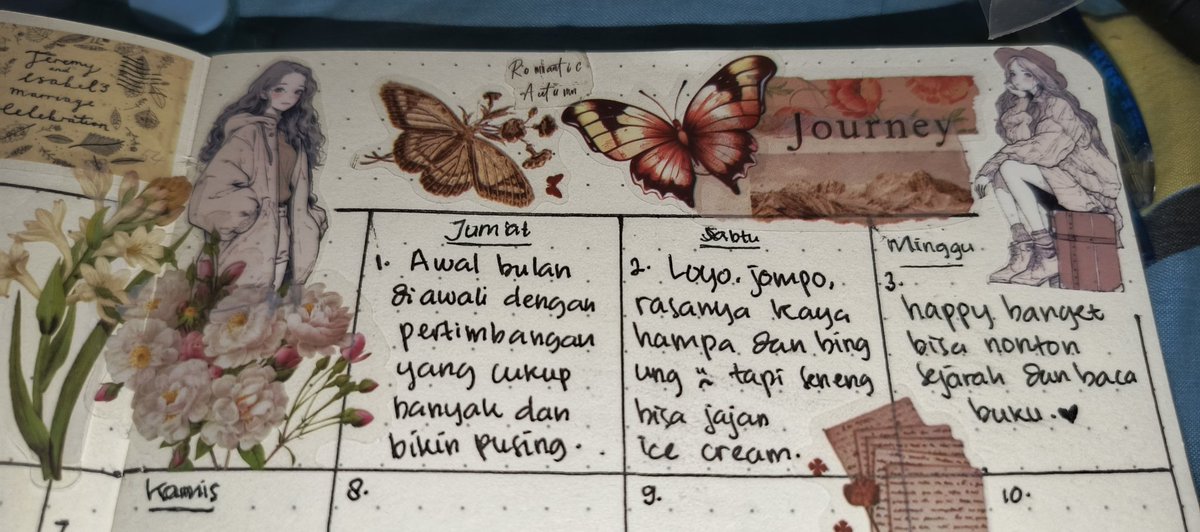 Jeremy
and
esabel's
marriage
celebration
Romantic
Autumn
Journey
Jum'at
1. Awal bulan
diawali dengan
pertimbangan
yang cukup
banyak dan
bikin pusing.
Sabtu
2. Loyo. jompo,
rasanya kaya
hampa dan bing
ung tapi seneng
bisa jajan
ice cream.
Minggu
3.
happy banget
bisa nonton
sejarah dan baca
buku. ♥
Kamis
7
8.
9.
10.